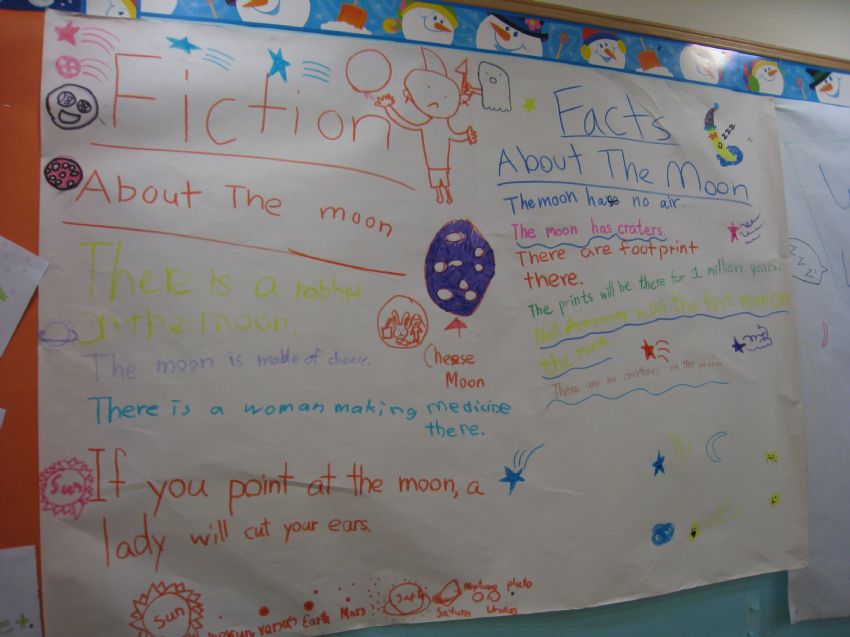 Fiction
About The moon
There is a rabbit
in the moon.
The moon is made of cheese.
Cheese
Moon
There is a woman making medicine
there.
If you point at the moon, a
lady will cut your ears.
Sun
Sun
venus Earth Mars
Saturn
Neptune
Uranus
pluto
Facts
About The Moon
zzz
The moon has no air.
The moon has craters.
There are footprint
there.
The prints will be there for 1 million years.
Neil Armstrong was the first man on
the moon
There are no creatures on the moon
zzz